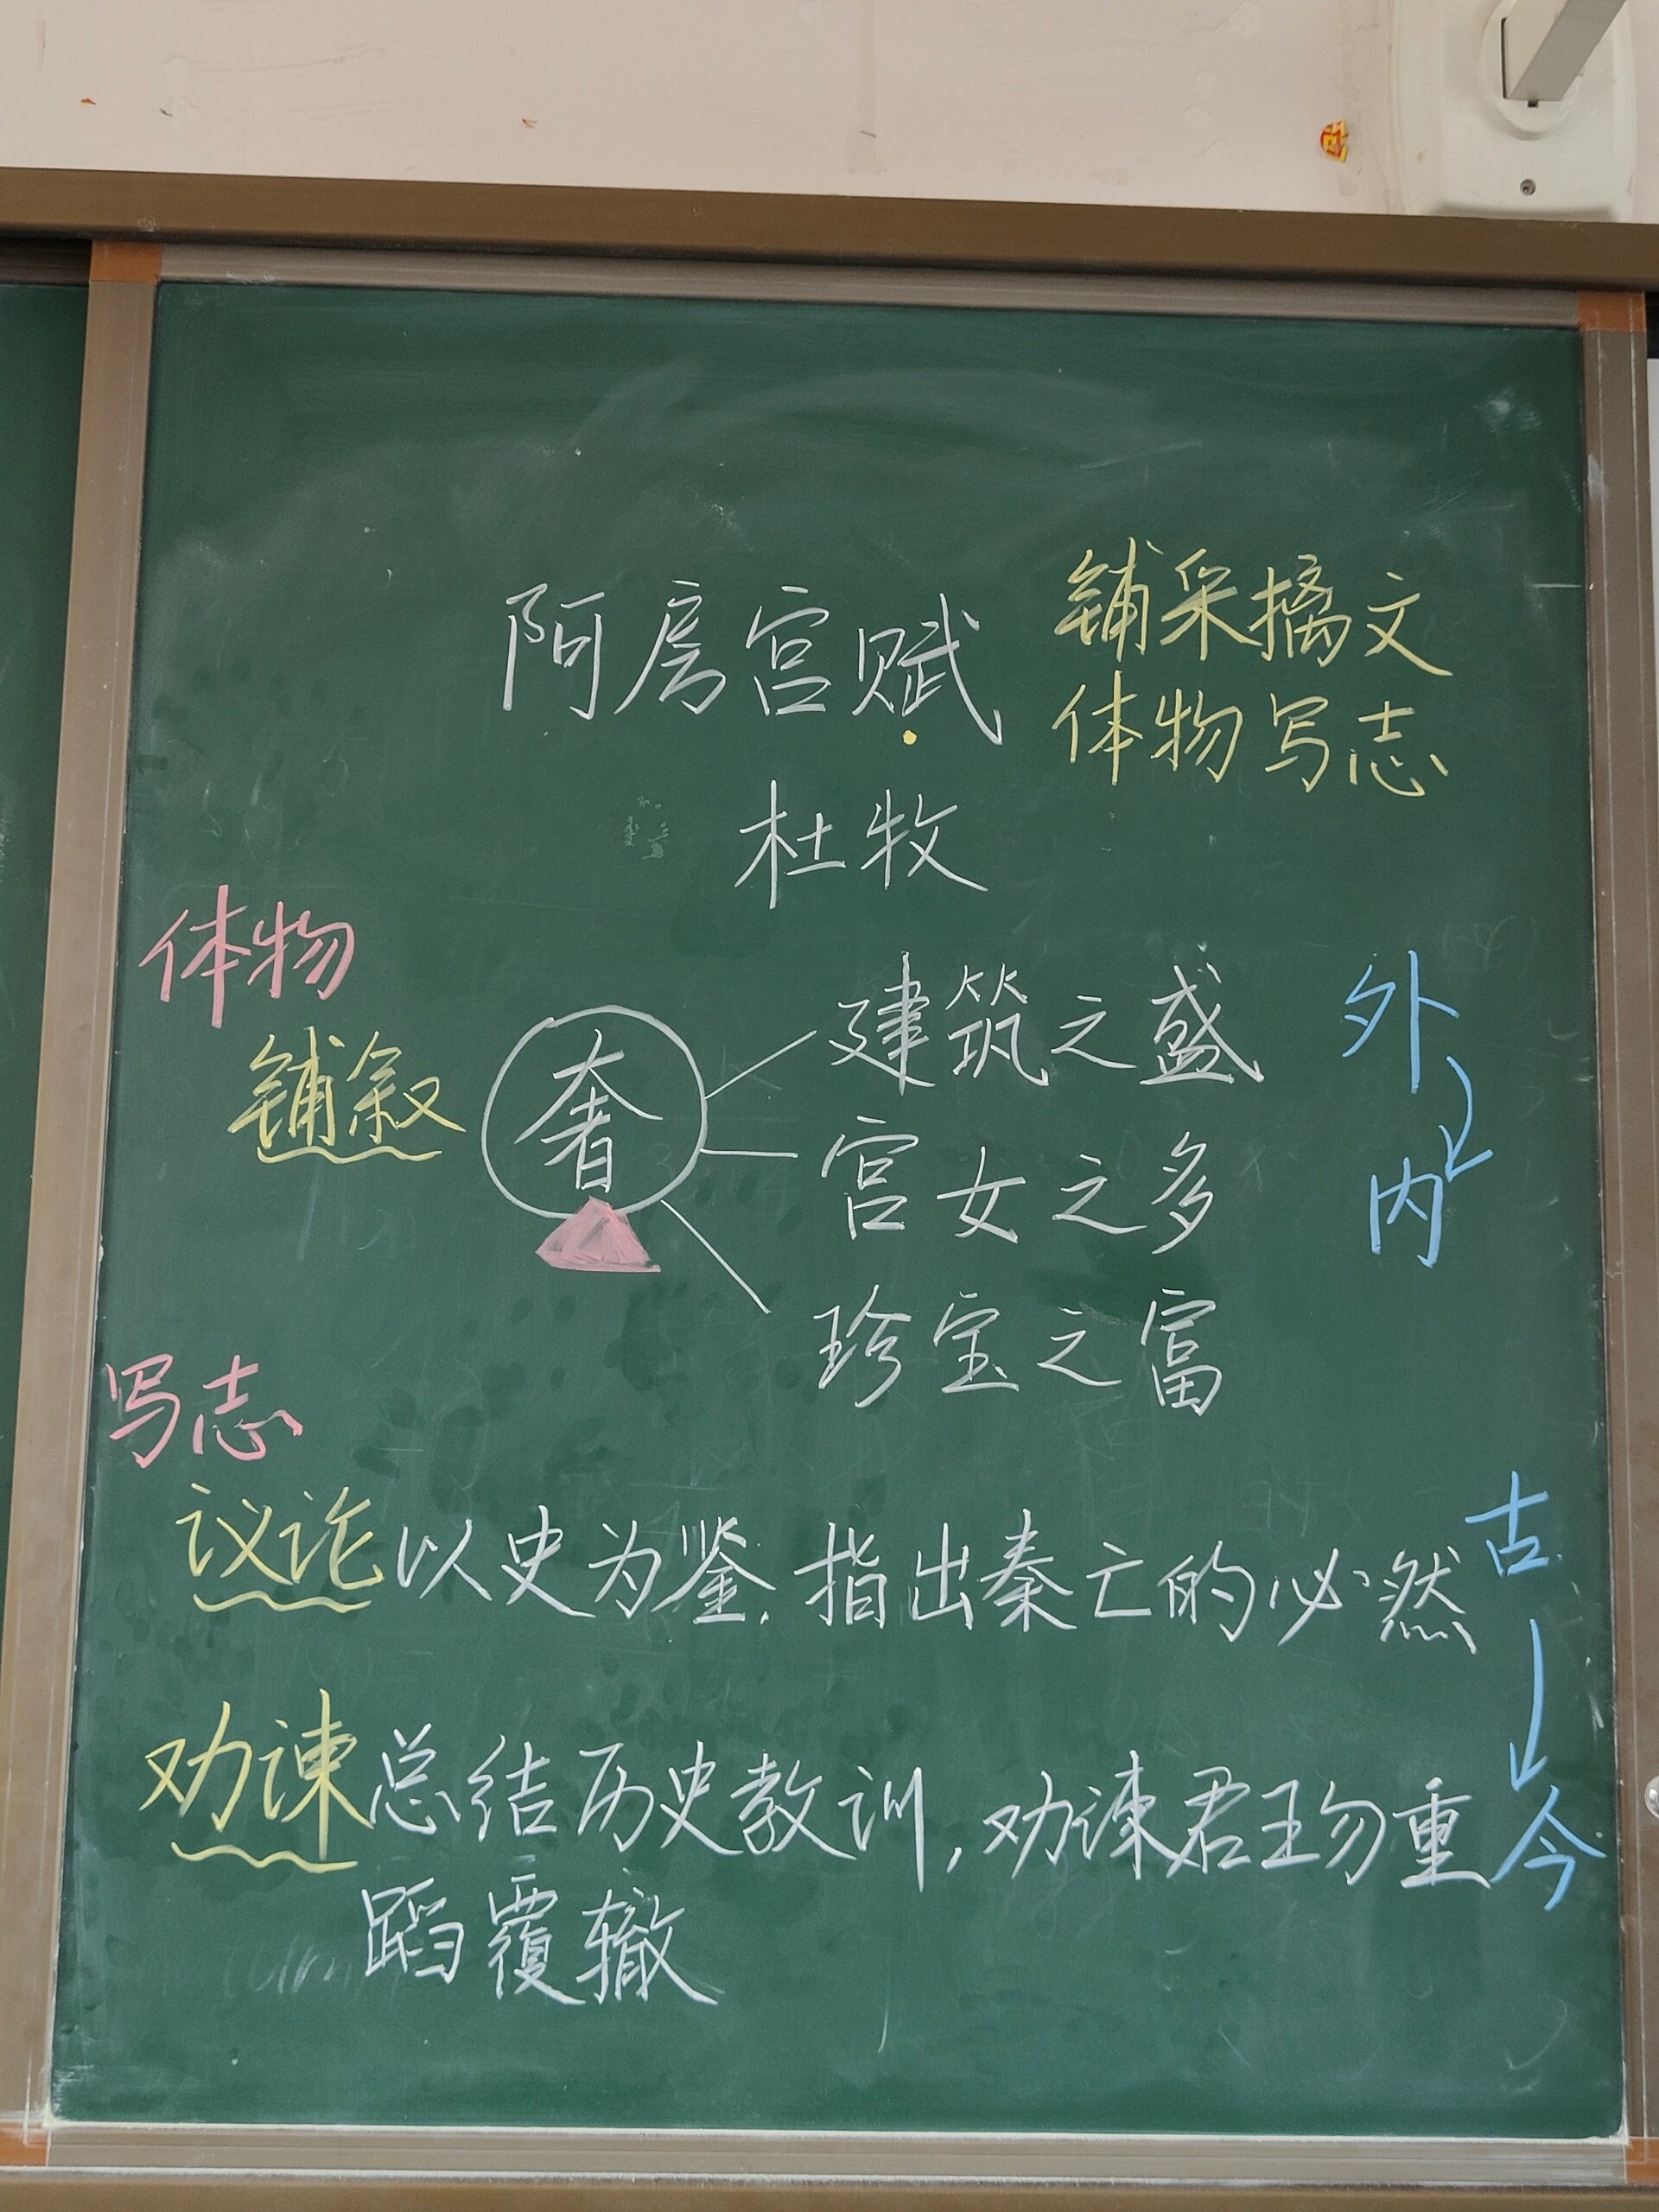 阿房宫赋
铺采摛文
体物写志
杜牧
体物
铺叙
奢
建筑之盛
宫女之多
珍宝之富
外
内
写志
议论 以史为鉴,指出秦亡的必然
古
劝谏 总结历史教训,劝谏君王勿重
蹈覆辙
今